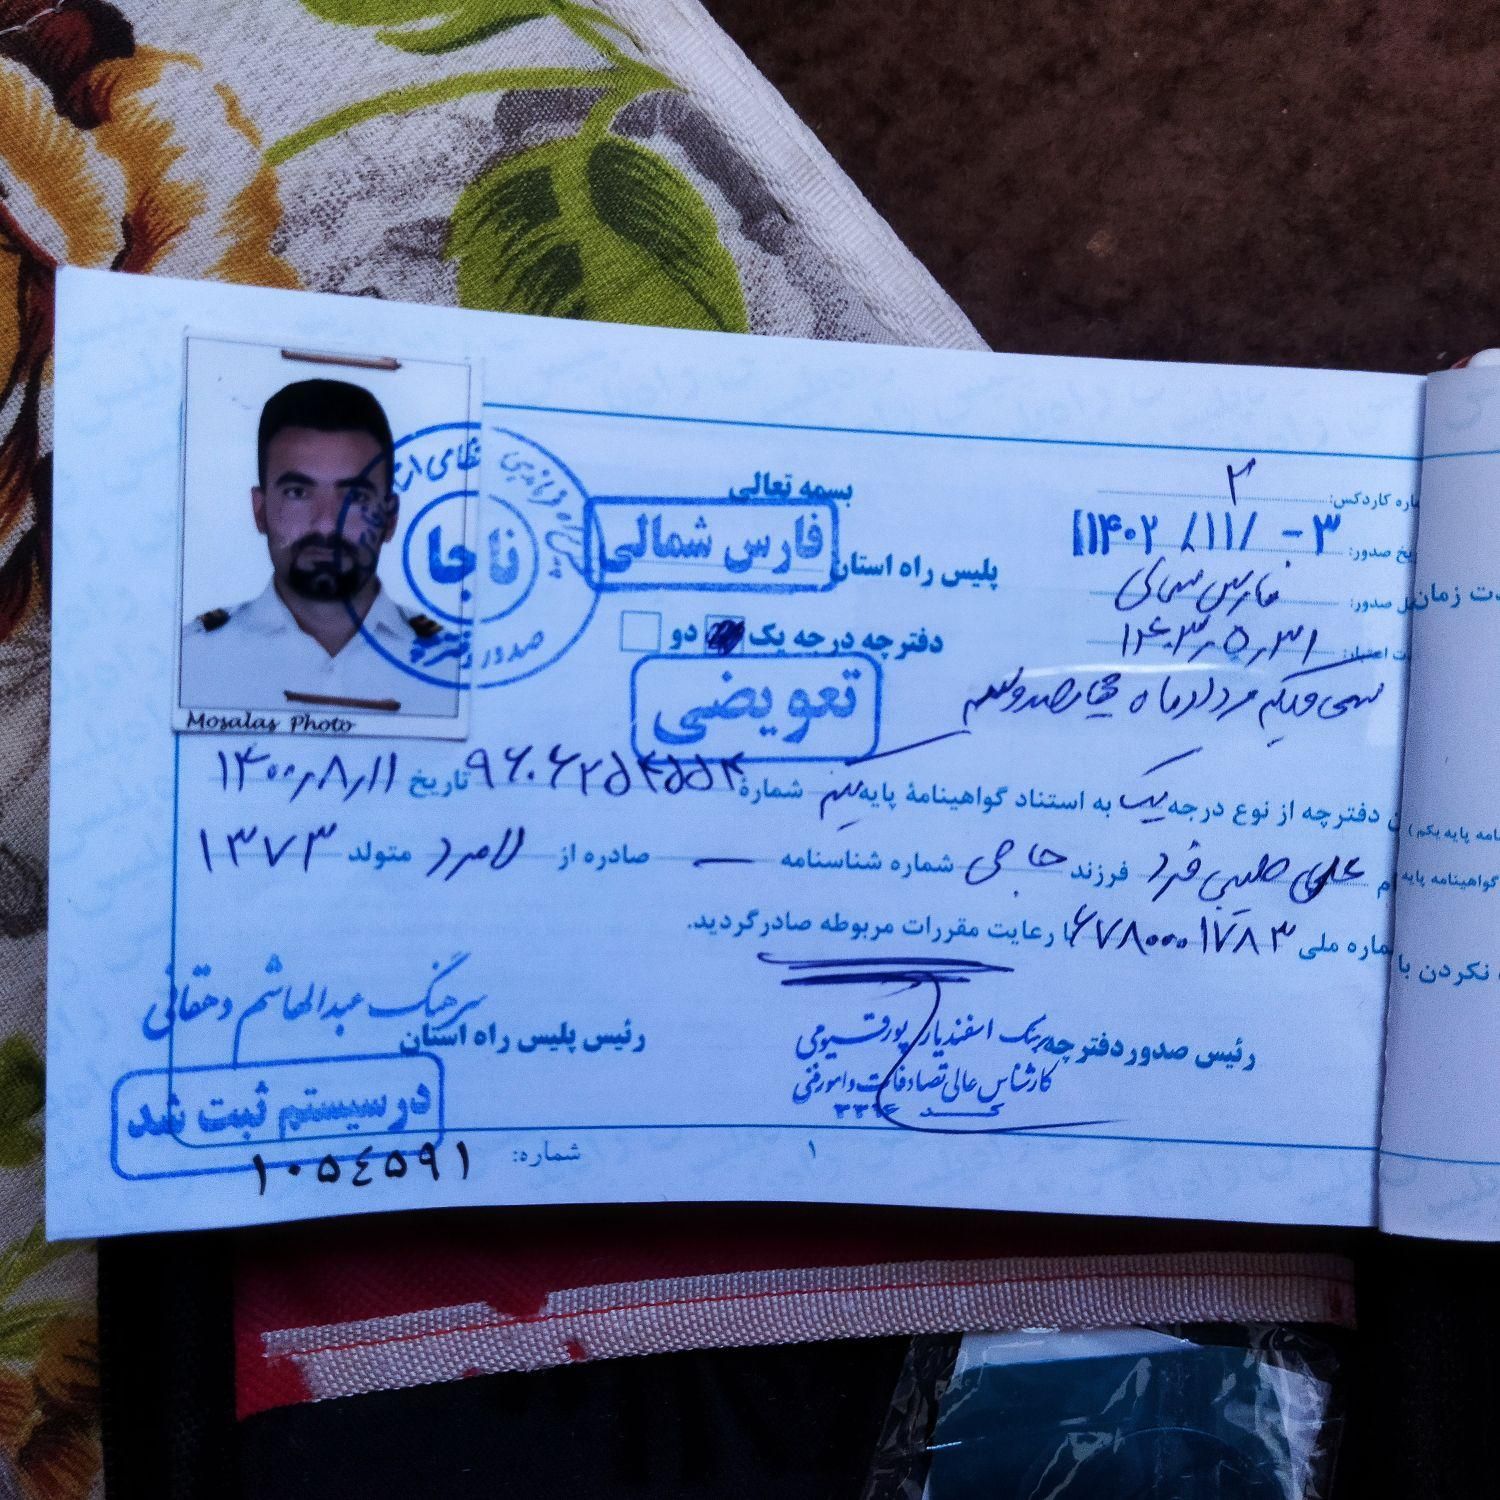 بسمه تعالی
پلیس راه استان فارس شمالی
دفترچه درجه یک دو
تعویضی
شماره کاردکس: ۲
تاریخ صدور: ۱۴۰۲/۱۱/۰۳
محل صدور: فارس شمالی
اعتبار: ۱۴۰۳٫۵٫۳۱
سی و یکم مرداد ماه
دفترچه از نوع درجه یک به استناد گواهینامهٔ پایه یکم شمارهٔ ۹۶۰۶۲۵۴۵۵۴ تاریخ ۱۴۰۰٫۸٫۱۱
علی حبیبی فرد فرزند حاجی شماره شناسنامه — صادره از لامرد متولد ۱۳۷۳
شماره ملی ۶۷۸۰۰۰۱۷۸۳ با رعایت مقررات مربوطه صادر گردید.
رئیس صدور دفترچه
اسفندیار پورقیومی
کارشناس عالی تصادفات و امور فنی
رئیس پلیس راه استان
سرهنگ عبدالهاشم دهقانی
در سیستم ثبت شد
شماره: ۱۰۵٤۵۹۱
۱
ناجا
صدور دفترچه
Mosalas Photo
مدت زمان
نامه پایه یکم)
گواهینامه پایه
نکردن با